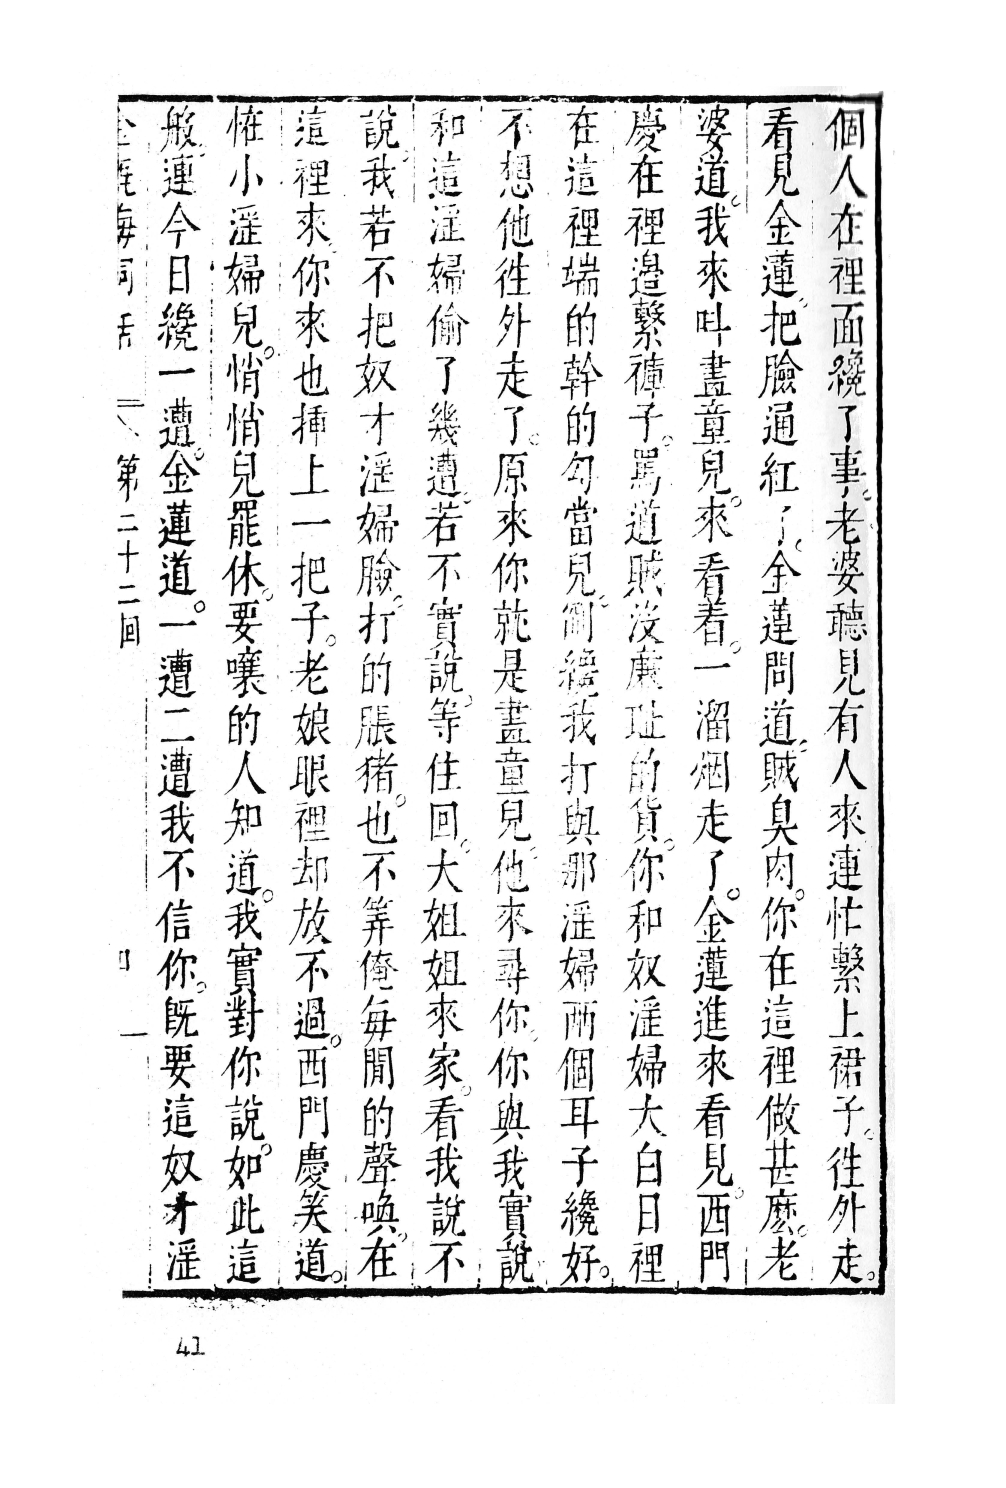 個人在裡面纔了事。老婆聽見有人來連忙繫上裙子。徃外走。
看見金蓮。把臉通紅了。金蓮問道。賊臭肉。你在這裡做甚麽。老
婆道。我來呌畫童兒。來看着。一溜烟走了。金蓮進來看見。西門
慶在裡邉繫褲子。罵道賊沒廉耻的貨。你和奴淫婦大白日裡
在這裡端的幹的勾當兒。剛纔我打與那淫婦兩個耳子纔好。
不想他徃外走了。原來你就是畫童兒。他來尋你。你與我實說
和這淫婦偷了幾遭。若不實說。等住回。大姐姐來家。看我說不
說。我若不把奴才淫婦臉。打的脹猪。也不筭俺每閒的聲喚。在
這裡來。你來也挿上一把子。老娘眼裡却放不過。西門慶笑道。
怪小淫婦兒。悄悄兒罷休。要嚷的人知道。我實對你說。如此這
般連今日纔一遭。金蓮道。一遭二遭我不信你。旣要這奴才淫
金瓶梅詞話 第二十二回 四
41